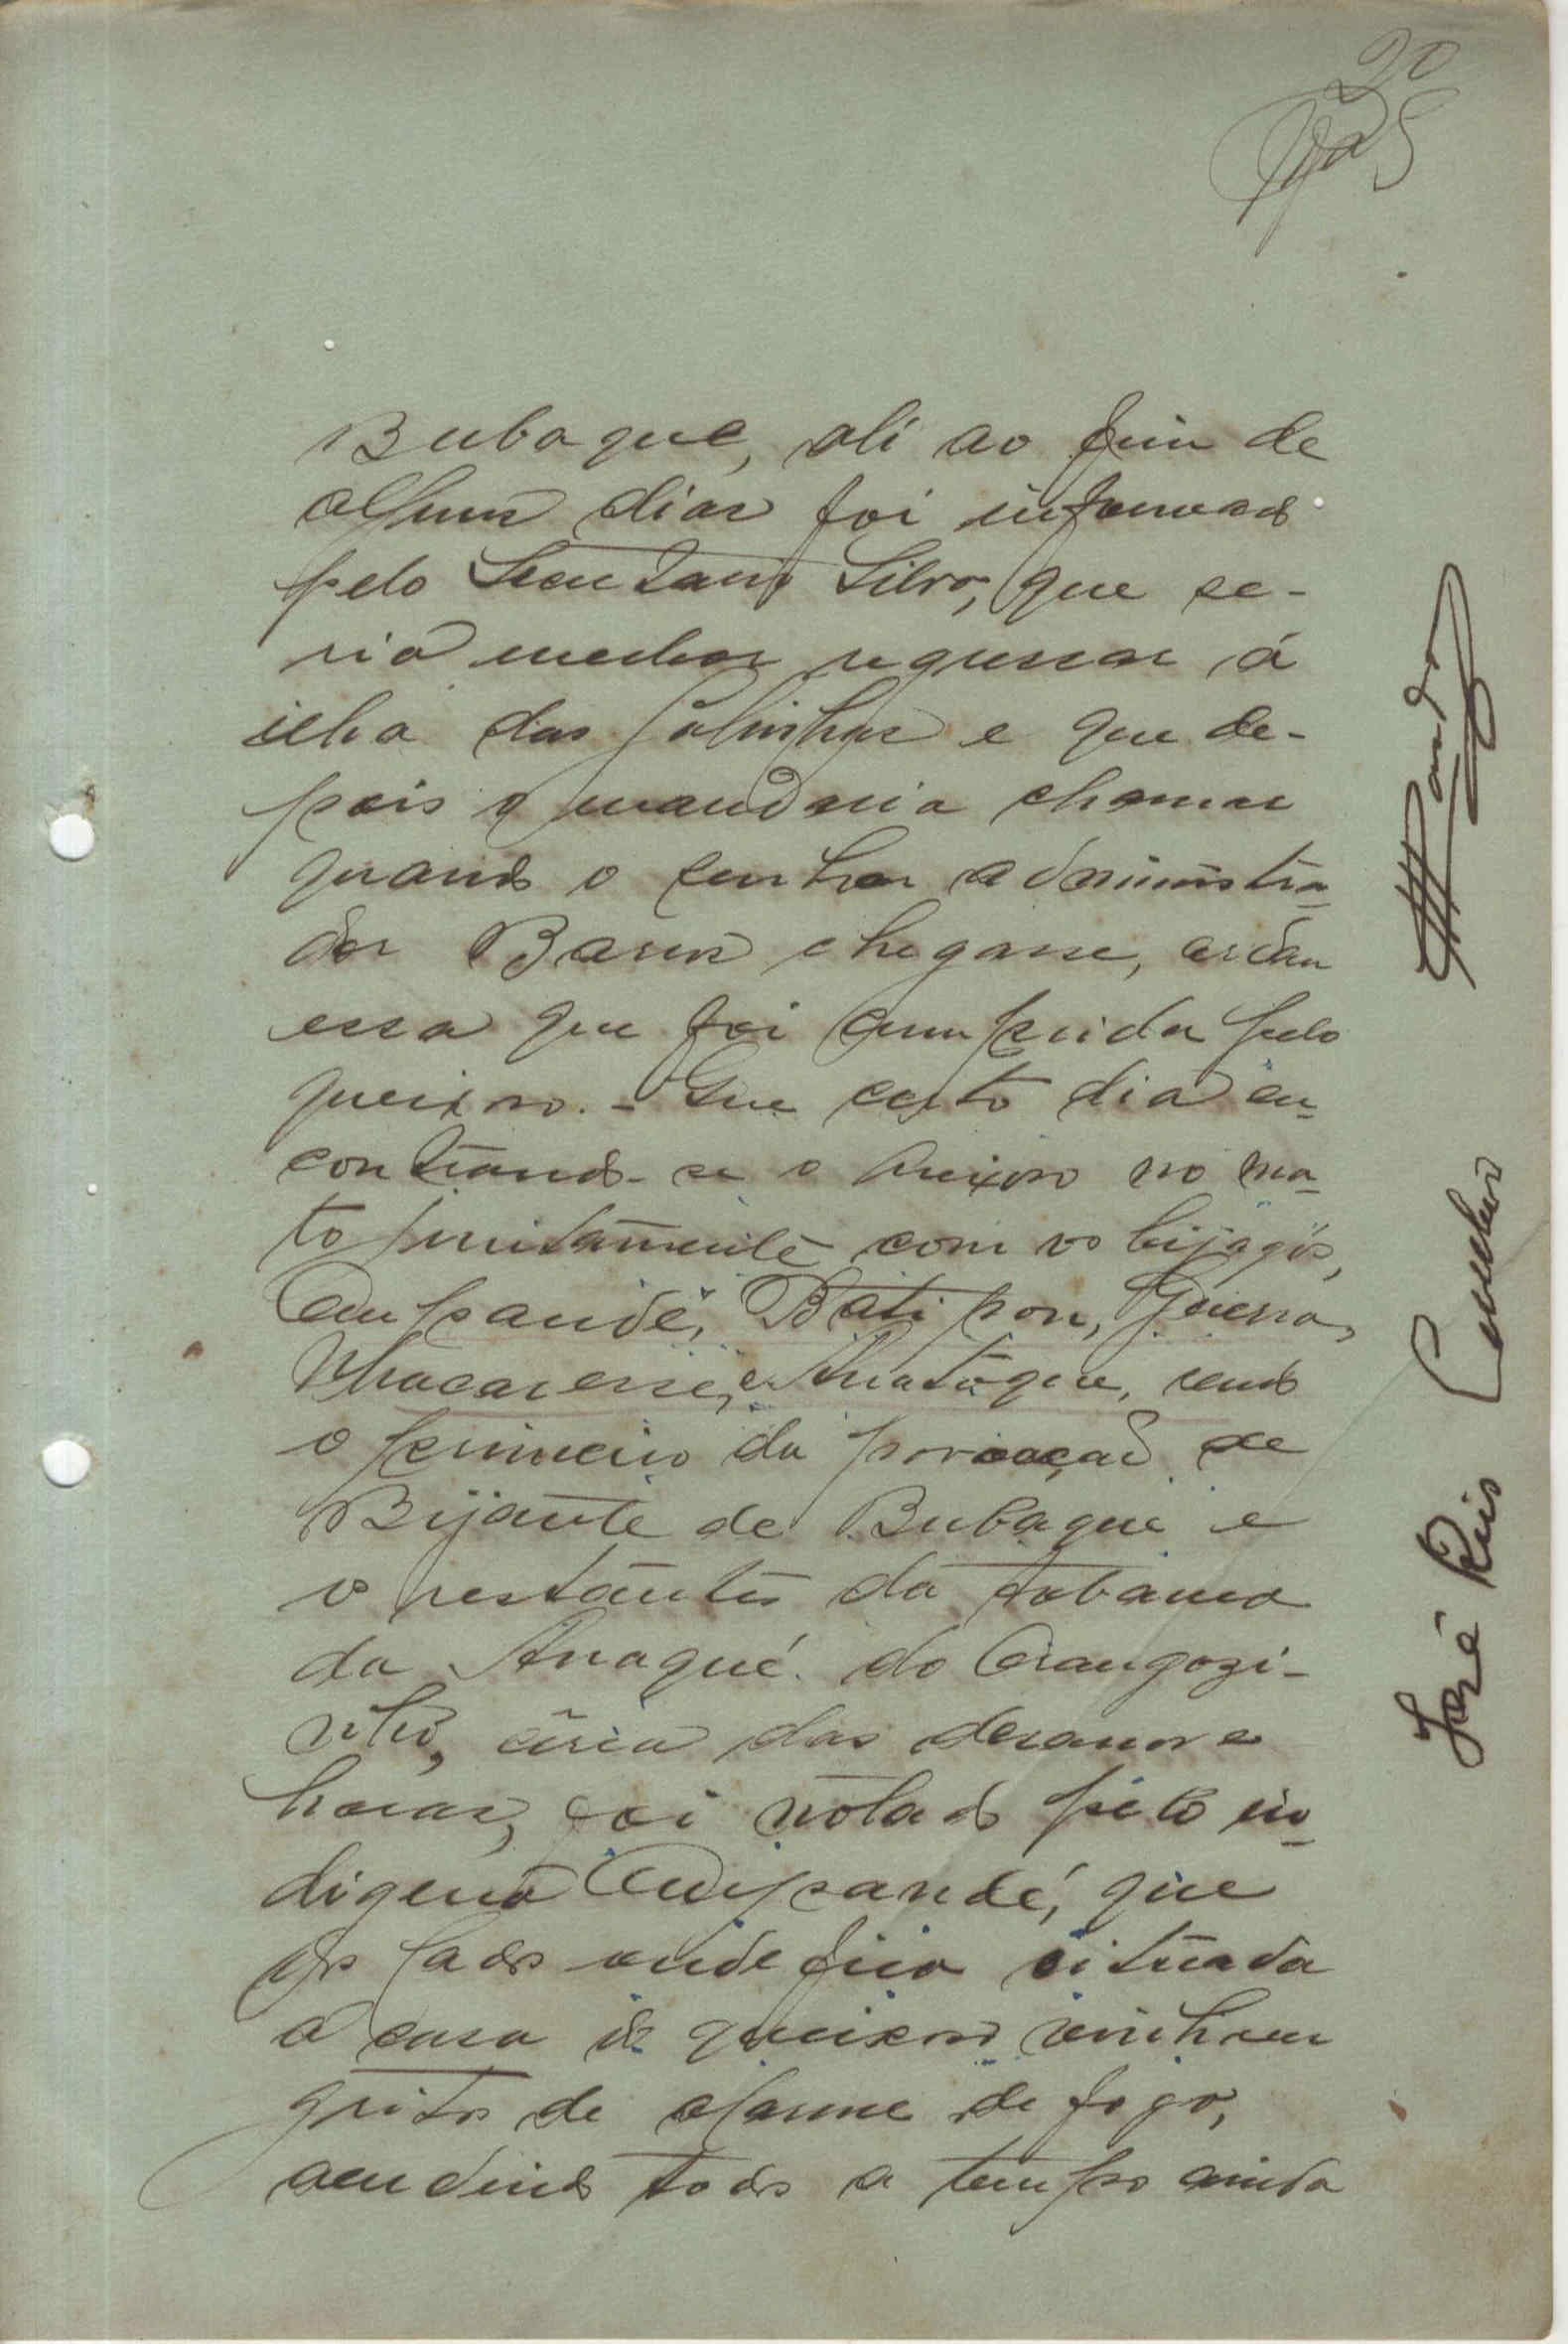 20
Bubaque, ali ao fim de
alguns dias foi informado
pelo Secretario Silva, que se-
ria melhor regressar á
ilha das Galinhas e que de-
pois o mandaria chamar
quando o senhor administra-
dor Barros chegasse, ordem
essa que foi cumprida pelo
queixoso. - Que certo dia en-
contrando-se o queixoso no ma-
to juntamente com os bijagós,
Campandé, Batipon, Guerra,
e sendo
o primeiro da povoação de
Bijante de Bubaque e
o restantes da tabanca
da Anaqué do Orangozi-
nho, cêrca das desanove
horas, foi notado pelo in-
digena Campandé, que
os lados onde fica situada
a casa do queixoso vinham
gritos de alarme de fogo,
acudindo todos a tempo ainda
José Reis